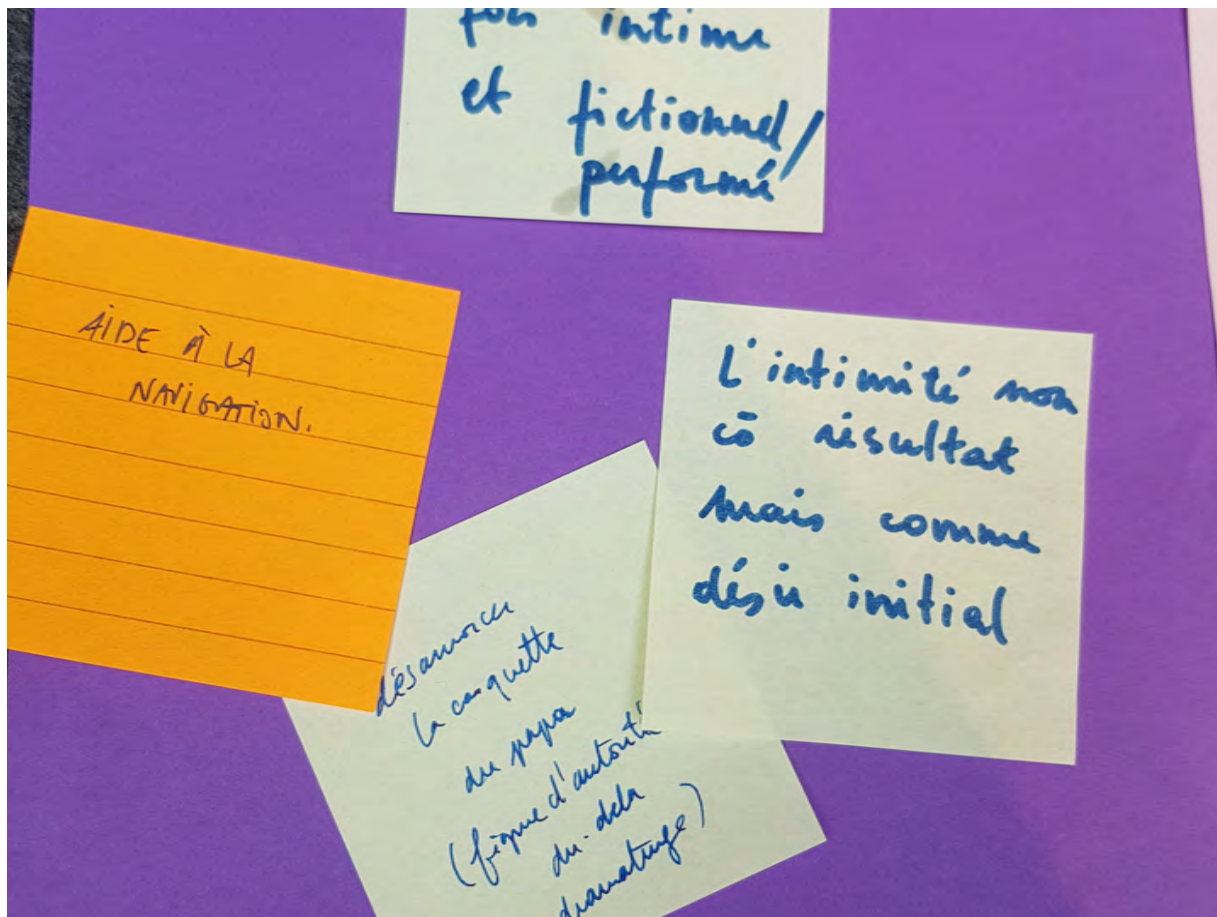 fois intime
et fictionnel/
performé
AIDE À LA
NAVIGATION.
L'intimité non
cō résultat
mais comme
désir initial
désamorcer
la casquette
du papa
(figure d'autorité
du·dela
dramaturge)